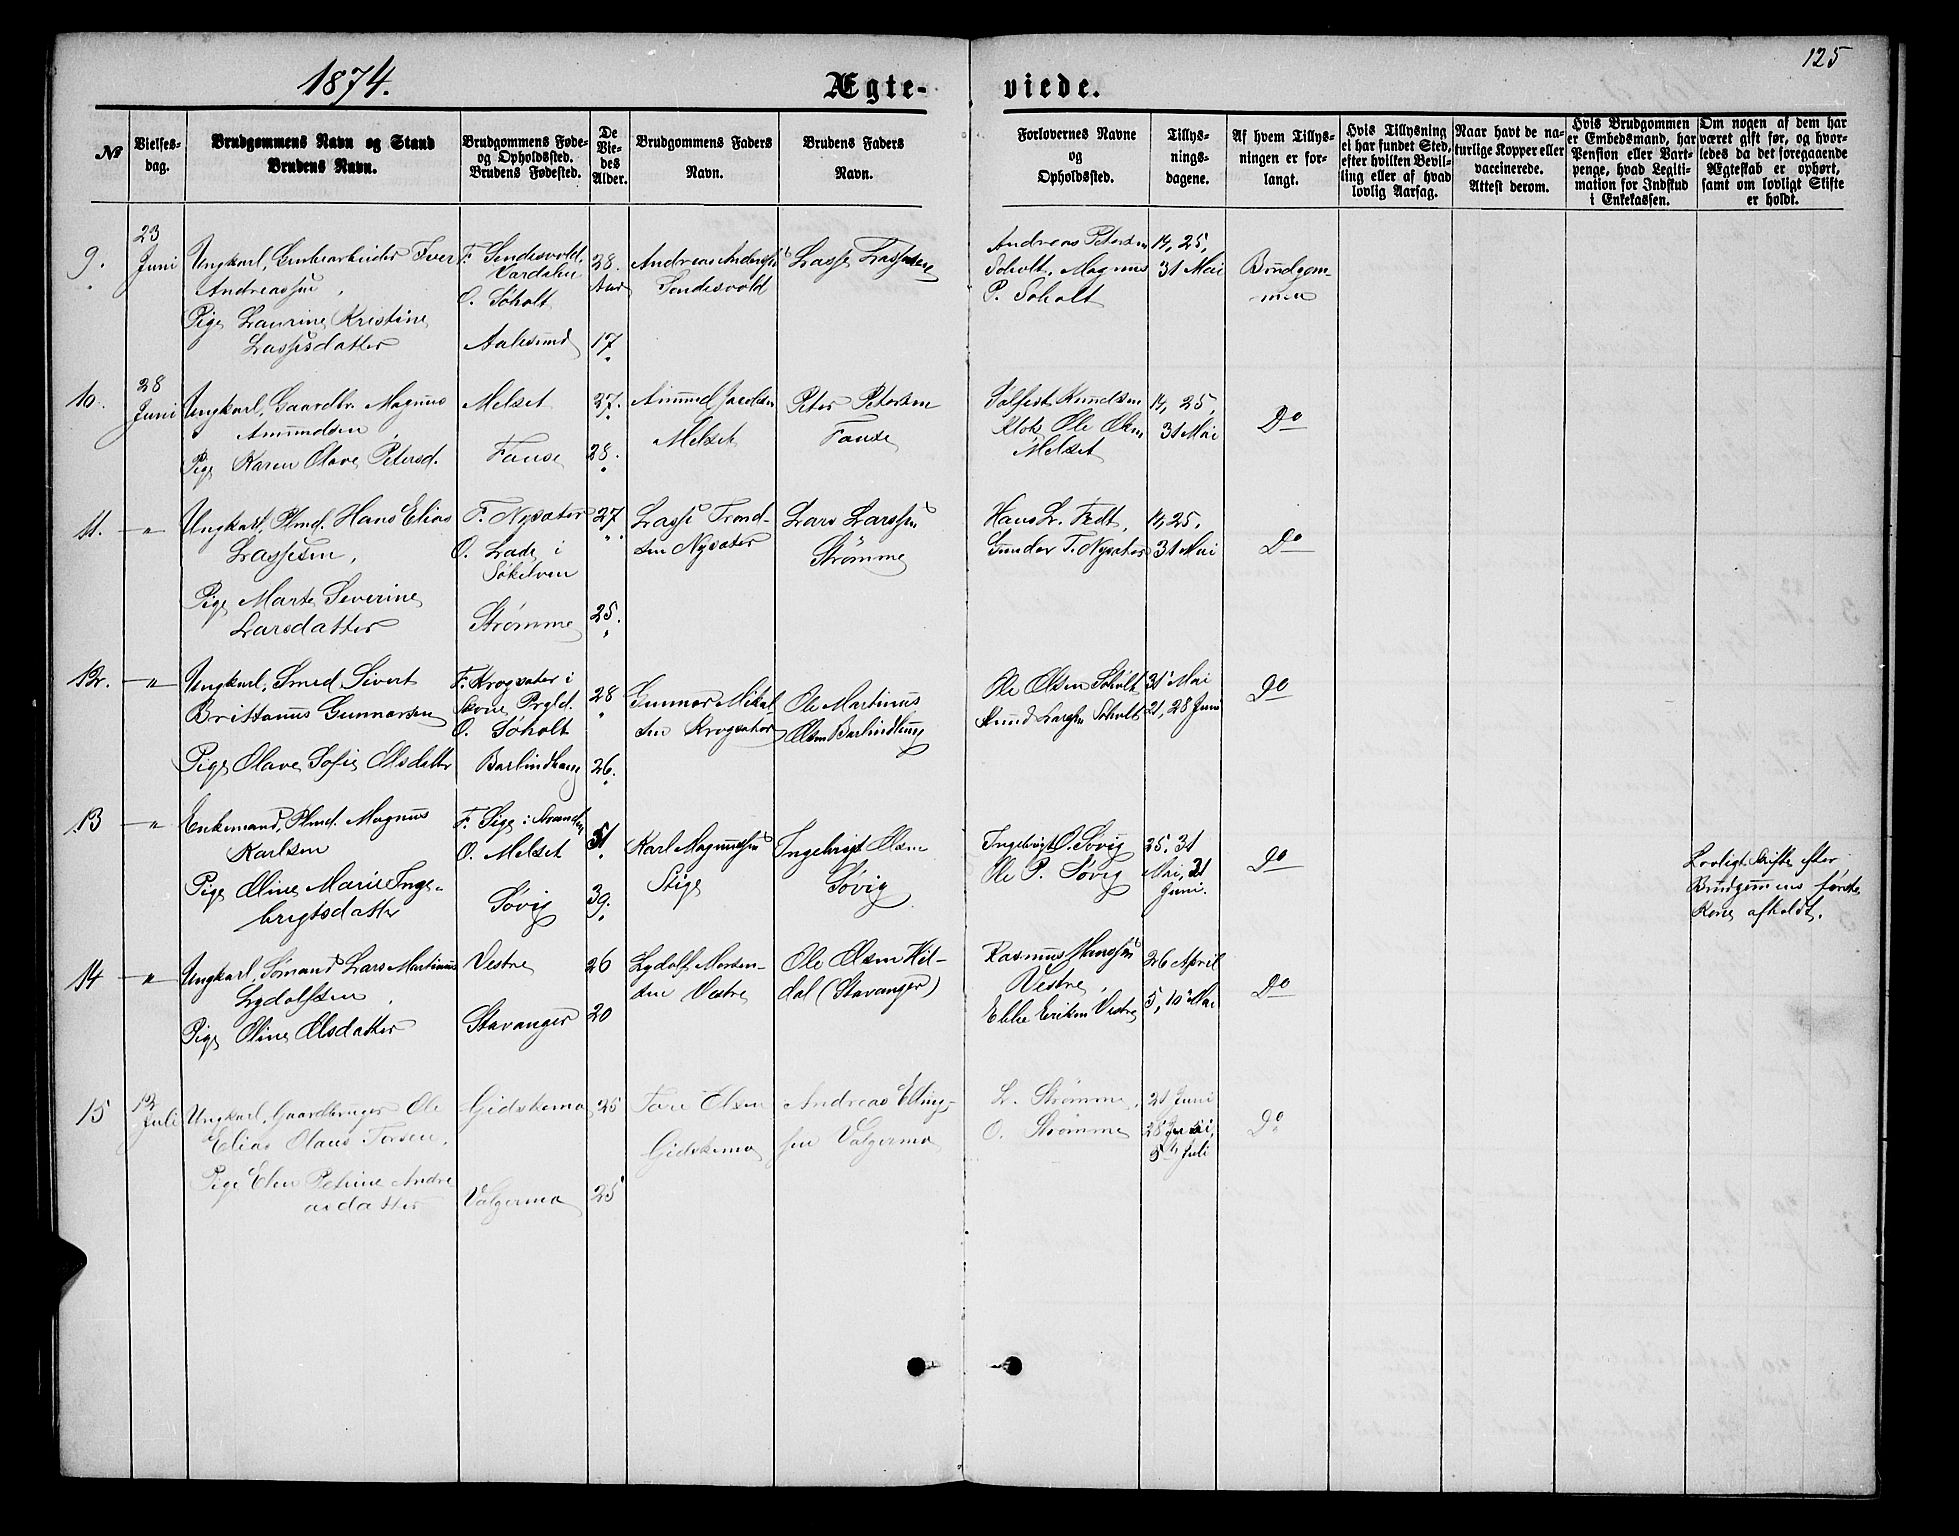 1874.
Ægte-
viede.
125
No
Vielses-
dag.
Brudgommens Navn og Stand
Brudens Navn.
Brudgommens Føde-
og Opholdssted.
Brudens Fødested.
De
Vie-
des
Alder.
Brudgommens Faders
Navn.
Brudens Faders
Navn.
Forlovernes Navne
og
Opholdssted.
Tillys-
nings-
dagene.
Af hvem Tillys-
ningen er for-
langt.
Hvis Tillysning
ei har fundet Sted,
efter hvilken Bevil-
ling eller af hvad
lovlig Aarsag.
Naar havt de na-
turlige Kopper eller
vaccinerede.
Attest derom.
Hvis Brudgommen
er Embedsmand, har
Pension eller Vart-
penge, hvad Legiti-
mation for Indskud
i Enkekassen.
Om nogen af dem har
været gift før, og hvor-
ledes da det foregaaende
Ægteskab er ophørt,
samt om lovligt Skifte
er holdt.
9.
23
Juni
Ungkarl, Grubearbeider Iver
Andreassen
Pige Laurine Kristine
Lassesdatter
F. Sendesvold,
Værdalen
O. Søholt
Aalesund
28.
Aar
17
Andreas Anderssen
Sendesvold
Lasse Lassesen
Andreas Petersen
Soholt, Magnus
P. Soholt
14, 25,
31 Mai
Brudgom-
men
10.
28
Juni
Ungkarl, Gaardbr. Magnus
Amundsen
Pige Karen Olave Petersd.
Melset
Fause
27.
28.
Amund Jacobsen
Melset
Peter Petersen
Fause
Sølfest Knudsen
Klok Ole Olsen
Melset
14, 25,
31 Mai
Do
11.
"
Ungkarl, Plmd. Hans Elias
Lassesen,
Pige Marte Severine
Larsdatter
F. Nysæter
O. Lade i
Søkelven
Strømme
27
25.
Lasse Trond-
sen Nysæter
Lars Larssen
Strømme
Hans L. Tedt,
Gunder T. Nysæter
14, 25,
31 Mai
Do
12.
"
Ungkarl, Smed Sivert
Brittanus Gunnarsen
Pige Olave Sofie Olsdatter
F. Krogsæter i
Skovie Prgld.
O. Søholt
Barlindhaug
28
26.
Gunnar Mikal
sen Krogsæter
Ole Martinus
Olsen Barlindhaug
Ole Olsen Soholt
Knud Larssen Soholt
31 Mai
21, 28 Juni
Do
13
"
Enkemand, Plmd. Magnus
Karlsen
Pige Oline Marie Inge-
brigtsdatter
F. Sige i Stranden
O. Melset
Søvig
51
39.
Karl Magnussen
Stige
Ingebrigt Olsen
Søvig
Ingebrigt O. Søvig
Ole P. Søvig
25. 31
Mai, 21
Juni.
Do
Lovligt Skifte efter
Brudgommens første
Kone afholdt.
14
"
Ungkarl, Sømand Lars Martinus
Lydolfsen
Pige Oline Olsdatter
Vestre
Stavanger
26
20
Lydolf Morten-
sen Vestre
Ole Olsen Hil-
dal (Stavanger)
Rasmus Hanssen
Vestre
Ebbe Eriksen Vestre
26 April
5, 10 Mai
Do
15
12
Juli
Ungkarl, Gaardbruger Ole
Elias Olaus Torsen,
Pige Elen Petrine Andre
asdatter
Gidskemo
Valgermo
25
25
Tore Elsen
Gidskemo
Andreas Elling-
sen Valgermo
L. Strømme,
O. Strømme
21 Juni
28 Juni,
5te Juli
Do